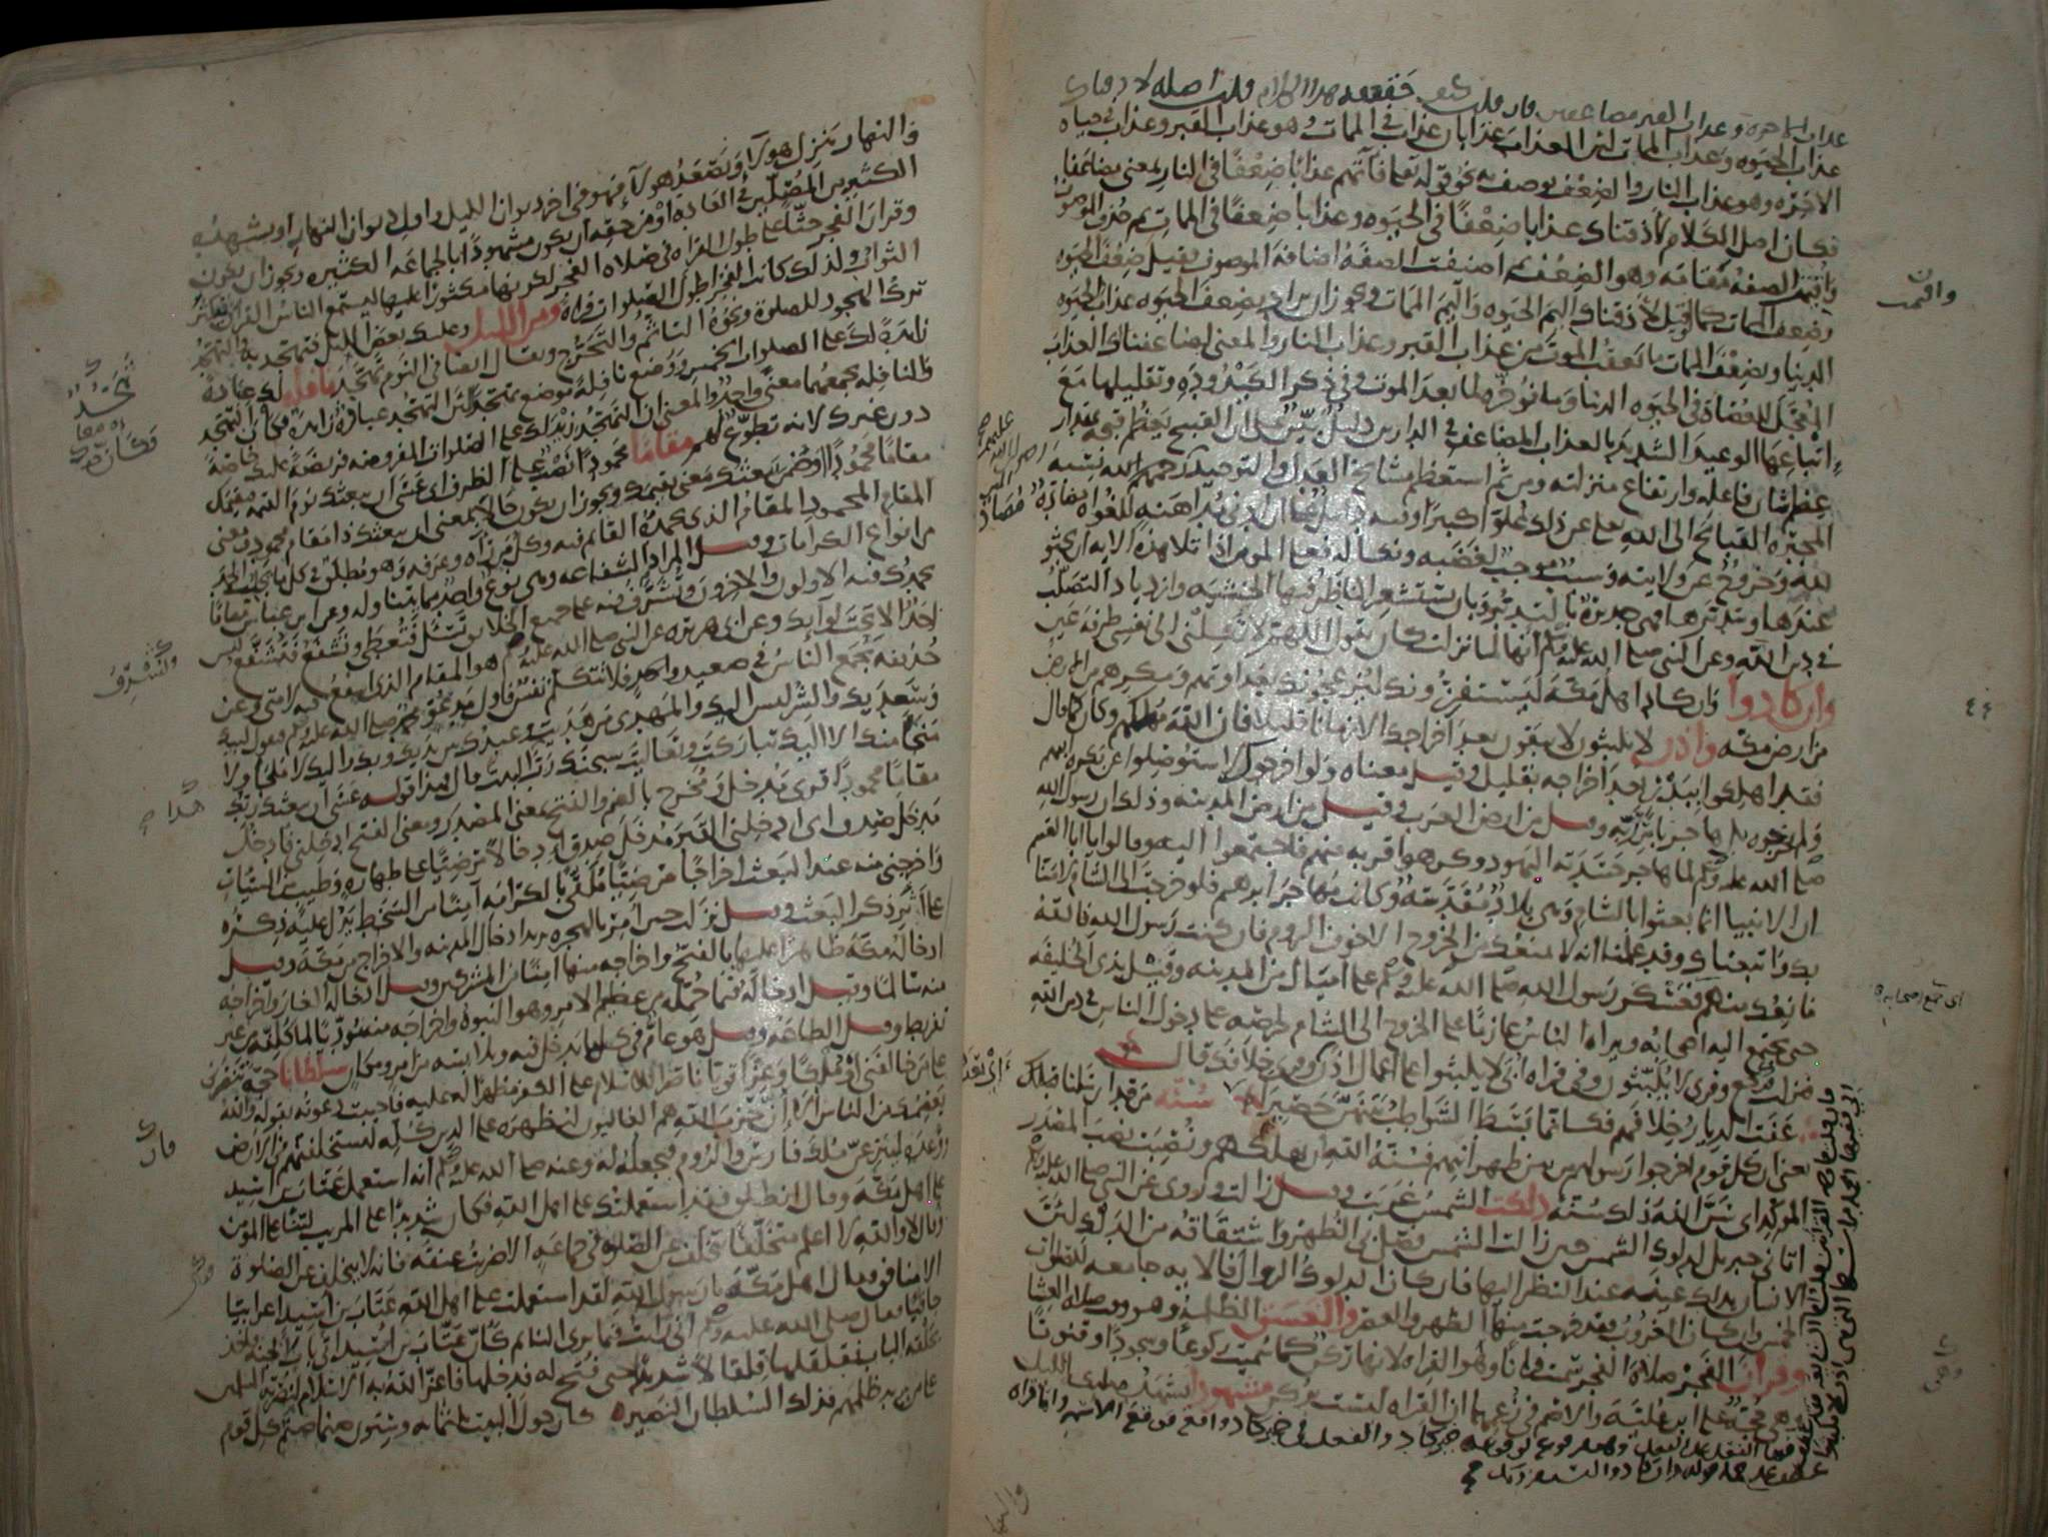 عذاب الآخرة وعذاب القبر مضاعفين فان قلت كيف حقيقة هذا الكلام قلت اصله لاذقناك
عذاب الحيوه وعذاب الممات لان العذاب عذابان عذاب في الممات وهو عذاب القبر وعذاب في حياه
الاخره وهو عذاب النار والضعف يوصف به نحو قوله تعالى فآتهم عذابا ضعفا في النار بمعنى مضاعفا
فكان اصل الكلام لأذقناك عذابا ضعفا في الحيوه وعذابا ضعفا في الممات ثم حذف الموصوف
واقيمت الصفة مقامه وهو الضعف ثم اضيفت الصفة اضافة الموصوف فقيل ضعف الحيوه
وضعف الممات كما لو قيل لأذقناك أليم الحيوه وأليم الممات ويجوز ان يراد بضعف الحيوه عذاب الحيوه
الدنيا وبضعف الممات ما يعقب الموت من عذاب القبر وعذاب النار والمعنى لضاعفنا لك العذاب
المعجل للعصاة في الحيوه الدنيا وما نؤخره لما بعد الموت وفي ذكر الكيدودة وتقليلها مع
إتباعها الوعيد الشديد بالعذاب المضاعف في الدارين دليل بين على ان القبيح يعظم قبحه بمقدار
عظم شان فاعله وارتفاع منزلته ومن ثم استعظم مشايخ العدل والتوحيد رحمهم الله نسبة
المجبره القبائح الى الله تعالى عن ذلك علوا كبيرا وفيه دليل على ان ادنى مداهنة للغواه مضادة
لله وخروج عن ولايته وسبب موجب لغضبه ونكاله فعلى المومن اذا تلا هذه الايه ان يجثو
عندها ويتدبرها فهي جديرة بالتدبر وبان يستشعر الناظر فيها الخشيه وازدياد التصلب
في دين الله وعن النبي صلى الله عليه وسلم انها لما نزلت كان يقول اللهم لا تكلني الى نفسي طرفة عين
وان كادوا وان كاد اهل مكة ليستفزونك ليزعجونك بعداوتهم ومكرهم من الارض
من ارض مكه واذن لا يلبثون لا يبقون بعد اخراجك الا زمانا قليلا فان الله مهلكهم وكان كما قال
فقد اهلكوا ببدر بعد اخراجه بقليل وقيل معناه ولو اخرجوك لاستؤصلوا عن بكره ابيهم
ولم يخرجوه بل هاجر بامر ربه وقيل من ارض العرب وقيل من ارض المدينه وذلك ان رسول الله
صلى الله عليه وسلم لما هاجر حسدته اليهود وكرهوا قربه منهم فاجتمعوا اليه وقالوا يا ابا القسم
ان الانبيا انما بعثوا بالشام وهي بلاد مقدسة وكانت مهاجر ابرهيم فلو خرجت الى الشام لامنا
بك واتبعناك وقد علمنا انه لا يمنعك من الخروج الا خوف الروم فان كنت رسول الله فالله
مانعك منهم فعسكر رسول الله صلى الله عليه وسلم على اميال من المدينه وقيل بذي الحليفه
حتى يجتمع اليه اصحابه ويراه الناس عازما على الخروج الى الشام لحرصه على دخول الناس في دين الله
فنزلت فرجع وقرى لا يلبثون وفي قراه ابي لا يلبثوا على اعمال اذن وقرى خلافك قال
عفت الديار خلافهم فكانما بسط الشواطب بينهن حصيرا سنة من قد ارسلنا قبلك
يعني ان كل قوم اخرجوا رسولهم من بين ظهرانيهم فسنة الله ان يهلكهم ونصبت نصب المصدر
المؤكد اي سن الله ذلك سنة دلكت الشمس غربت وقيل زالت وروى عن النبي صلى الله عليه وسلم
اتاني جبريل لدلوك الشمس حين زالت الشمس فصلى بي الظهر واشتقاقه من الدلك لان
الانسان يدلك عينه عند النظر اليها فان كان الدلوك الزوال فالايه جامعه للصلوات
الخمس وان كان الغروب فقد خرجت منها الظهر والعصر والغسق الظلمة وهو وقت صلاه العشا
وقران الفجر صلاة الفجر سميت قرانا وهو القراه لانها ركن كما سميت ركوعا وسجودا وقنوتا
وهي حجة على ابن علية والاصم في زعمهما ان القراه ليست بركن مشهودا يشهده ملائكة الليل
واقيمت
اي جمع اصحابه
والنهار ينزل هولآء ويصعد هولآء فهو في اخر ديوان الليل واول ديوان النهار او يشهده
الكثير من المصلين في العادة او من حقه ان يكون مشهودا بالجماعه الكثيره ويجوز ان يكون
وقران الفجر حثا على طول القراه في صلاه الفجر لكونها مكثورا عليها ليسمع الناس القران فيكثر
الثواب ولذلك كانت الفجر اطول الصلوات قراة ومن الليل وعليك بعض الليل فتهجد به والتهجد
ترك الهجود للصلوة ونحوه التاثم والتحرج ويقال ايضا في النوم تهجد نافلة لك عبادة
زايدة لك على الصلوات الخمس ووضع نافلة موضع تهجدا لان التهجد عبادة زايدة فكان التهجد
والنافله يجمعهما معنى واحد والمعنى ان التهجد زيد لك على الصلوات المفروضه فريضة عليك خاصة
دون غيرك لانه تطوع لهم مقاما محمودا نصب على الظرف اي عسى ان يبعثك يوم القيمه فيقيمك
مقاما محمودا او ضمن يبعثك معنى يقيمك ويجوز ان يكون حالا بمعنى ان يبعثك ذا مقام محمود ومعنى
المقام المحمود المقام الذي يحمده القائم فيه وكل من رآه وعرفه وهو مطلق في كل ما يجلب الحمد
من انواع الكرامات وقيل المراد الشفاعه وهي نوع واحد مما يتناوله وعن ابن عباس مقاما
يحمدك فيه الاولون والاخرون وتشرف فيه على جميع الخلايق تسئل فتعطى وتشفع فتشفع ليس
احد الا تحت لوآيك وعن ابي هريرة عن النبي صلى الله عليه وسلم هو المقام الذي اشفع فيه لامتي وعن
حذيفه يجمع الناس في صعيد واحد فلا تتكلم نفس فاول مدعو محمد صلى الله عليه وسلم فيقول لبيك
وسعديك والشر ليس اليك والمهدي من هديت وعبدك بين يديك وبك واليك لا ملجا ولا
منجا منك الا اليك تباركت وتعاليت سبحنك رب البيت قال فهذا قوله عسى ان يبعثك ربك
مقاما محمودا قرى مدخل ومخرج بالضم والفتح بمعنى المصدر ومعنى الفتح ادخلني فادخل
مدخل صدق اي ادخلني القبر مدخل صدق ادخالا مرضيا على طهارة وطيب من السيئات
واخرجني منه عند البعث اخراجا مرضيا ملقى بالكرامه آمنا من السخط يدل عليه ذكره
على اثر ذكر البعث وقيل نزلت حين امر بالهجره يريد ادخال المدينه والاخراج من مكه وقيل
ادخاله مكه ظاهرا عليها بالفتح واخراجه منها آمنا من المشركين وقيل ادخاله الغار واخراجه
منه سالما وقيل ادخاله فيما حمله من عظيم الامر وهو النبوة واخراجه منه مؤديا لما كلفه من غير
تفريط وقيل الطاعه وقيل هو عام في كل ما يدخل فيه ويلابسه من امر ومكان سلطانا حجة تنصرني
على من خالفني او ملكا وعزا قويا ناصرا للاسلام على الكفر مظهرا له عليه فاجيبت دعوته بقوله والله
يعصمك من الناس الا إن حزب الله هم الغالبون ليظهره على الدين كله ليستخلفنهم في الارض
ووعده لينزعن ملك فارس والروم فيجعله له وعنه صلى الله عليه وسلم انه استعمل عتاب بن اسيد
على اهل مكة وقال انطلق فقد استعملتك على اهل الله فكان شديدا على المريب لينا على المؤمن
وقال لا والله لا اعلم متخلفا يتخلف عن الصلوة في جماعة الا ضربت عنقه فانه لا يتخلف عن الصلوة
الا منافق فقال اهل مكة يا رسول الله لقد استعملت على اهل الله عتاب بن اسيد اعرابيا
جافيا فقال صلى الله عليه وسلم اني رأيت فيما يرى النائم كأن عتاب بن اسيد اتى باب الجنة فاخذ
بحلقه الباب فقلقلها قلقالا شديدا حتى فتح له فدخلها فاعز الله به الاسلام لنصرته المسلمين
على من يريد ظلمهم فذلك السلطان النصير كان حول البيت ثلثمائه وستون صنما صنم كل قوم